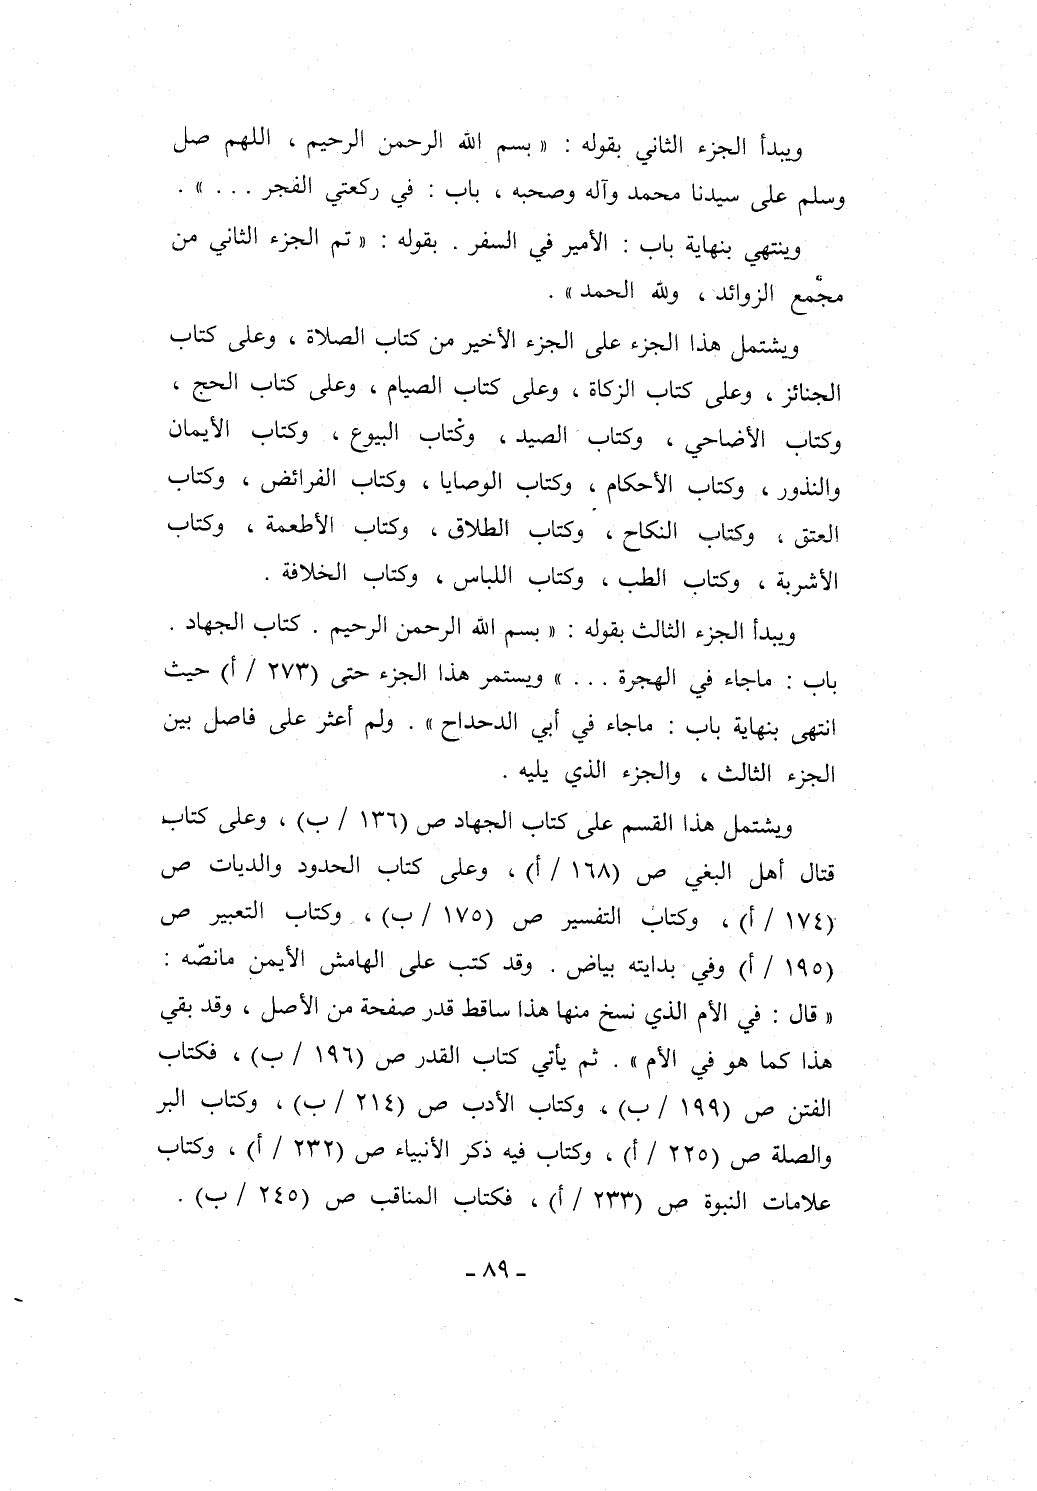 ويبدأ الجزء الثاني بقوله : « بسم الله الرحمن الرحيم ، اللهم صل
وسلم على سيدنا محمد وآله وصحبه ، باب : في ركعتي الفجر . . . » .
وينتهي بنهاية باب : الأمير في السفر . بقوله : « تم الجزء الثاني من
مجمع الزوائد ، ولله الحمد » .
ويشتمل هذا الجزء على الجزء الأخير من كتاب الصلاة ، وعلى كتاب
الجنائز ، وعلى كتاب الزكاة ، وعلى كتاب الصيام ، وعلى كتاب الحج ،
وكتاب الأضاحي ، وكتاب الصيد ، وكتاب البيوع ، وكتاب الأيمان
والنذور ، وكتاب الأحكام ، وكتاب الوصايا ، وكتاب الفرائض ، وكتاب
العتق ، وكتاب النكاح ، وكتاب الطلاق ، وكتاب الأطعمة ، وكتاب
الأشربة ، وكتاب الطب ، وكتاب اللباس ، وكتاب الخلافة .
ويبدأ الجزء الثالث بقوله : « بسم الله الرحمن الرحيم . كتاب الجهاد .
باب : ماجاء في الهجرة . . . » ويستمر هذا الجزء حتى (٢٧٣ / أ) حيث
انتهى بنهاية باب : ماجاء في أبي الدحداح » . ولم أعثر على فاصل بين
الجزء الثالث ، والجزء الذي يليه .
ويشتمل هذا القسم على كتاب الجهاد ص (١٣٦ / ب) ، وعلى كتاب
قتال أهل البغي ص (١٦٨ / أ) ، وعلى كتاب الحدود والديات ص
(١٧٤ / أ) ، وكتاب التفسير ص (١٧٥ / ب) ، وكتاب التعبير ص
(١٩٥ / أ) وفي بدايته بياض . وقد كتب على الهامش الأيمن مانصّه :
« قال : في الأم الذي نسخ منها هذا ساقط قدر صفحة من الأصل ، وقد بقي
هذا كما هو في الأم » . ثم يأتي كتاب القدر ص (١٩٦ / ب) ، فكتاب
الفتن ص (١٩٩ / ب) ، وكتاب الأدب ص (٢١٤ / ب) ، وكتاب البر
والصلة ص (٢٢٥ / أ) ، وكتاب فيه ذكر الأنبياء ص (٢٣٢ / أ) ، وكتاب
علامات النبوة ص (٢٣٣ / أ) ، فكتاب المناقب ص (٢٤٥ / ب) .
ـ ٨٩ ـ